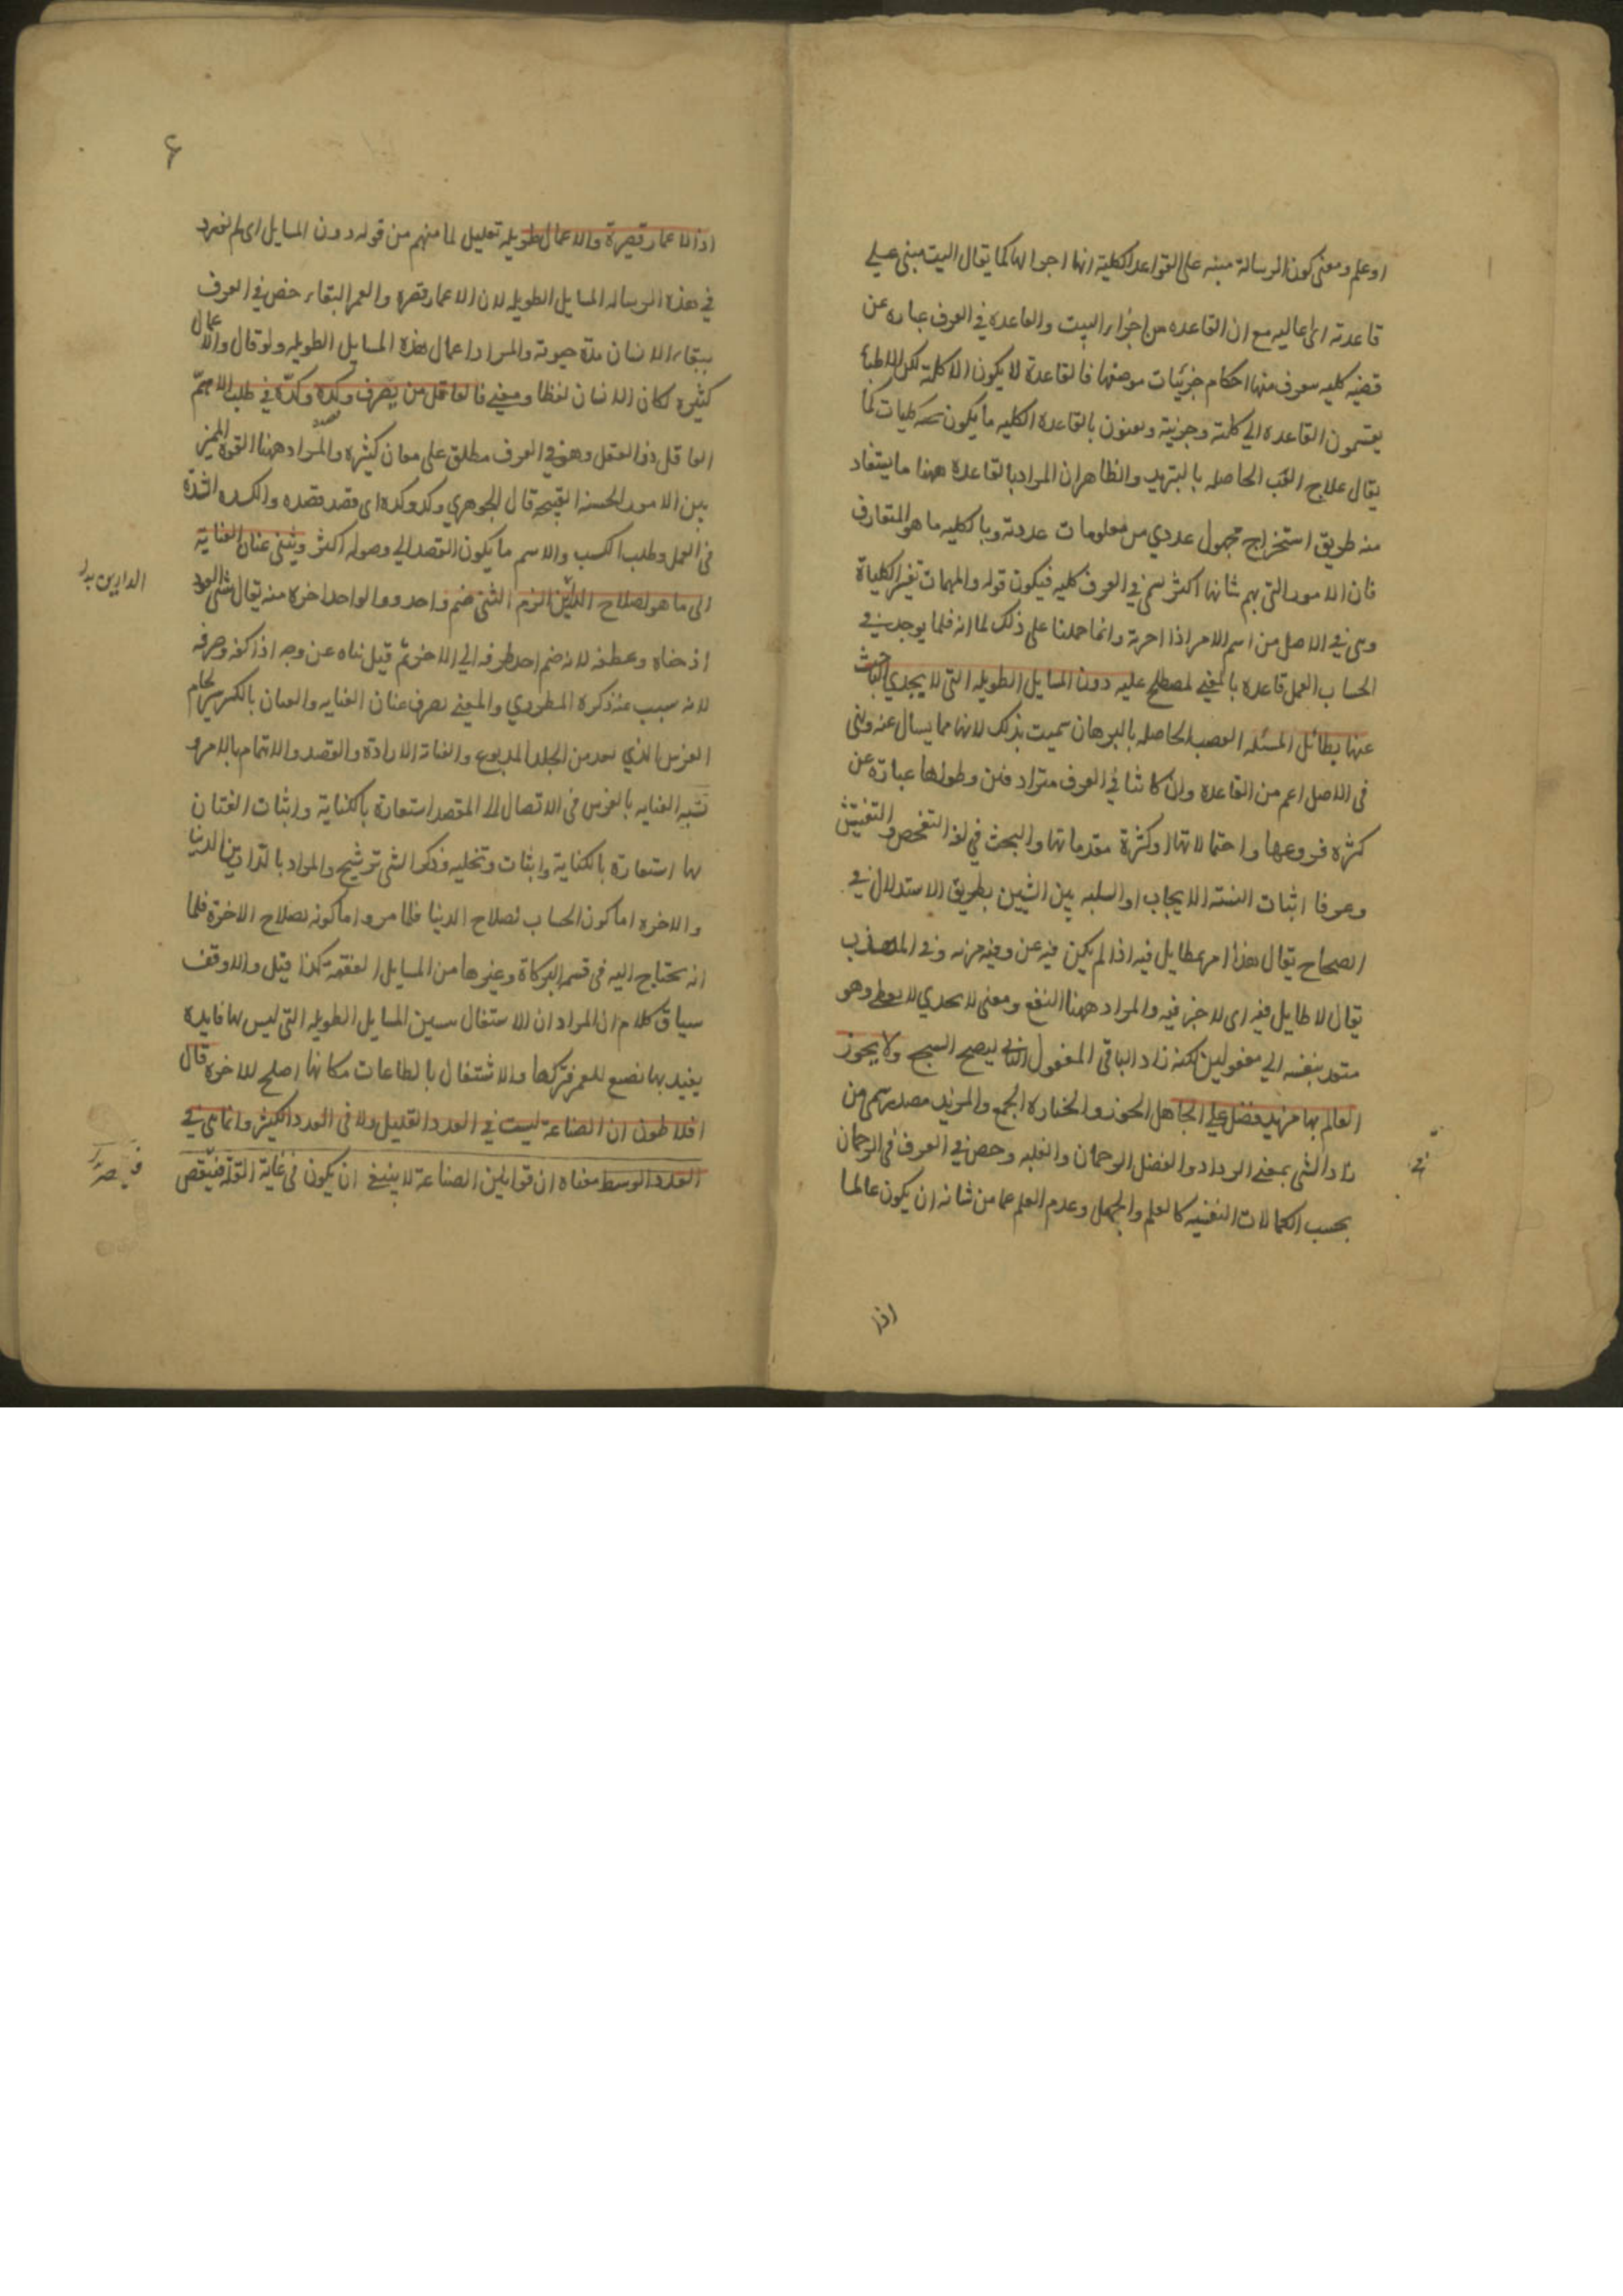 او علم ومعنى كون الرسالة مبنيه على القواعد الكلية انها اجوالها كما يقال البيت مبنى على
قاعدته اى اعاليه مع ان القاعده من اجزاء البيت والقاعده في العرف عباره عن
قضيه كليه يعرف منها احكام جزئيات موضوعها فالقاعدة لا يكون الا كلية لكن الاطباء
يقسمون القاعده الي كلية وجزئية ويعنون بالقاعدة الكليه ما يكون تحته كليات كما
يقال علاج الحاصله بالتبريد والظاهر ان المراد بالقاعدة ههنا ما يستفاد
منه طريق استخراج مجهول عددي من معلومات عددية وبالكليه ما هو المتعارف
فان الامور التي بهم شانها اكثر يسمى في العرف كليه فيكون قوله والمهمات تفسير الكليات
وهي في الاصل من اسم الامر اذا احزنه وانما حملنا على ذلك لما انه قلما يوجد في
الحساب العمل قاعده بالمعنى المصطلح عليه دون المسايل الطويله التى لا يجدي الباحث
عنها بطائل المسئله الحاصله بالبرهان سميت بذلك لانها مما يسال عنه وهى
في الاصل اعم من القاعده وان كانتا في العرف مترادفتين وطولها عبارة عن
كثره فروعها واحتمالاتها او كثرة مقدماتها والبحث في لغة التفحص والتفتيش
وعرفا اثبات النسبة الايجاب او السلبيه بين الشيئين بطريق الاستدلال في
الصحاح يقال هذا امر لا طايل فيه اذا لم يكن فيه غنى ومزيه وفي المهذب
يقال لا طايل فيه اى لا خير فيه والمراد ههنا النفع ومعنى لا يجدي لا يعطى وهو
متعد بنفسه الي مفعولين لكنه زاد البا في المفعول الثاني ليصح السجع ولا يحوز
العالم بها مزيد فضل على الجاهل الحوز والحيازه الجمع والمزيد مصدر ميمي من
زاد الشى بمعنى ازداد والفضل الرجحان والغلبه وخص في العرف في الرجحان
بحسب الكمالات النفسيه كالعلم والجهل وعدم العلم عما من شانه ان يكون عالما
اذا
اذ الاعمار قصيرة والاعمال طويله تعليل لما منهم من قوله دون المسايل اى لم نورد
في هذه الرساله المسايل الطويله لان الاعمار قصيره والعمر البقاء خص في العرف
ببقاء الانسان مدة حيوته والمراد اعمال هذه المسايل الطويله ولو قال والاعمال
كثيره لكان الانسان لفظا ومعنى فالعاقل من يصرف وكده وكدّه في طلب الاهم
العاقل ذو العقل وهو في العرف مطلق على معان كثيره والمراد ههنا القوة المميز
بين الامور الحسنه القبيحه قال الجوهري وكد وكده اى قصد قصده والكد الشدة
في العمل وطلب الكسب والاسم ما يكون القصد الي وصوله اكثر ويثنى عنان العناية
الى ما هو لصلاح الدارين الزم الثنى ضم واحد والواحد اخره منه يقال ثنى العود
اذا حناه وعطفه لانه ضم احد طرفيه الي الاخر ثم قيل ثناه عن وجه اذا كفه وصرفه
لانه سبب عنه ذكره المطرزي والمعنى يصرف عنان العنايه والعنان بالكسر لجام
الفرس الذي يعد من الجلد المدبوغ والعناية الارادة والقصد والاهتمام بالامر و
تشبيه العنايه بالفرس في الاتصال الى المقصد استعارة بالكناية واثبات العنان
لها استعارة بالكناية واثبات وتخليه وذكر الثنى ترشيح والمراد بالدارين الدنيا
والاخره اما كون الحساب لصلاح الدنيا فلما مر واما كونه لصلاح الاخرة فلما
انه يحتاج اليه في قسمه التركاة وغيرها من المسايل الفقهية كذا قيل والاوفق
سياق كلام ان المراد ان الاشتغال بهذه المسايل الطويله التي ليس لها فايده
يفيد بها تضييع للعمر فتركها والاشتغال بالطاعات مكانها اصلح للاخره قال
افلاطون ان الصناعة ليست في العدد القليل ولا في العدد الكثير وانما هي في
العدد الوسط معناه ان قوانين الصناعة لا ينبغى ان يكون في غاية القلة فينقص
الدارين بدل